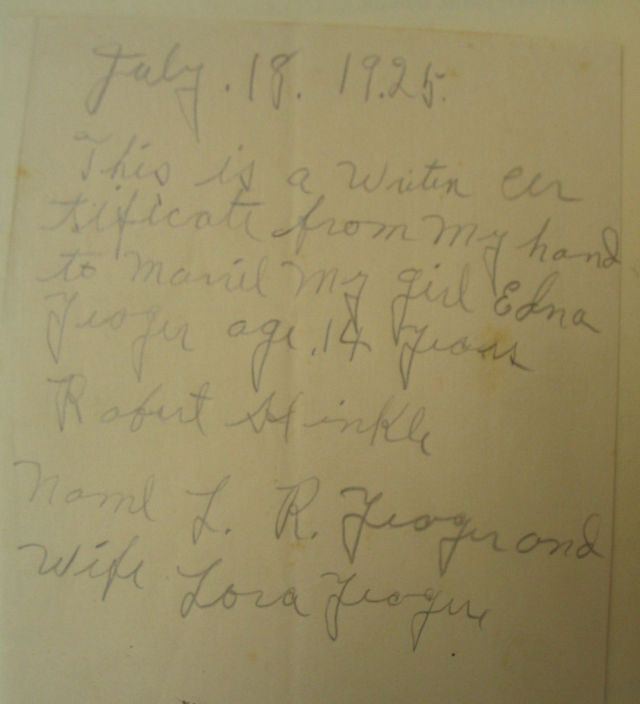 July. 18. 1925.
This is a writen cer
tificate from My hand
to mariel My girl Edna
Yeager age. 14 Years
Robert Hinkle
Name L. R. Yeager and
Wife Lora Yeager